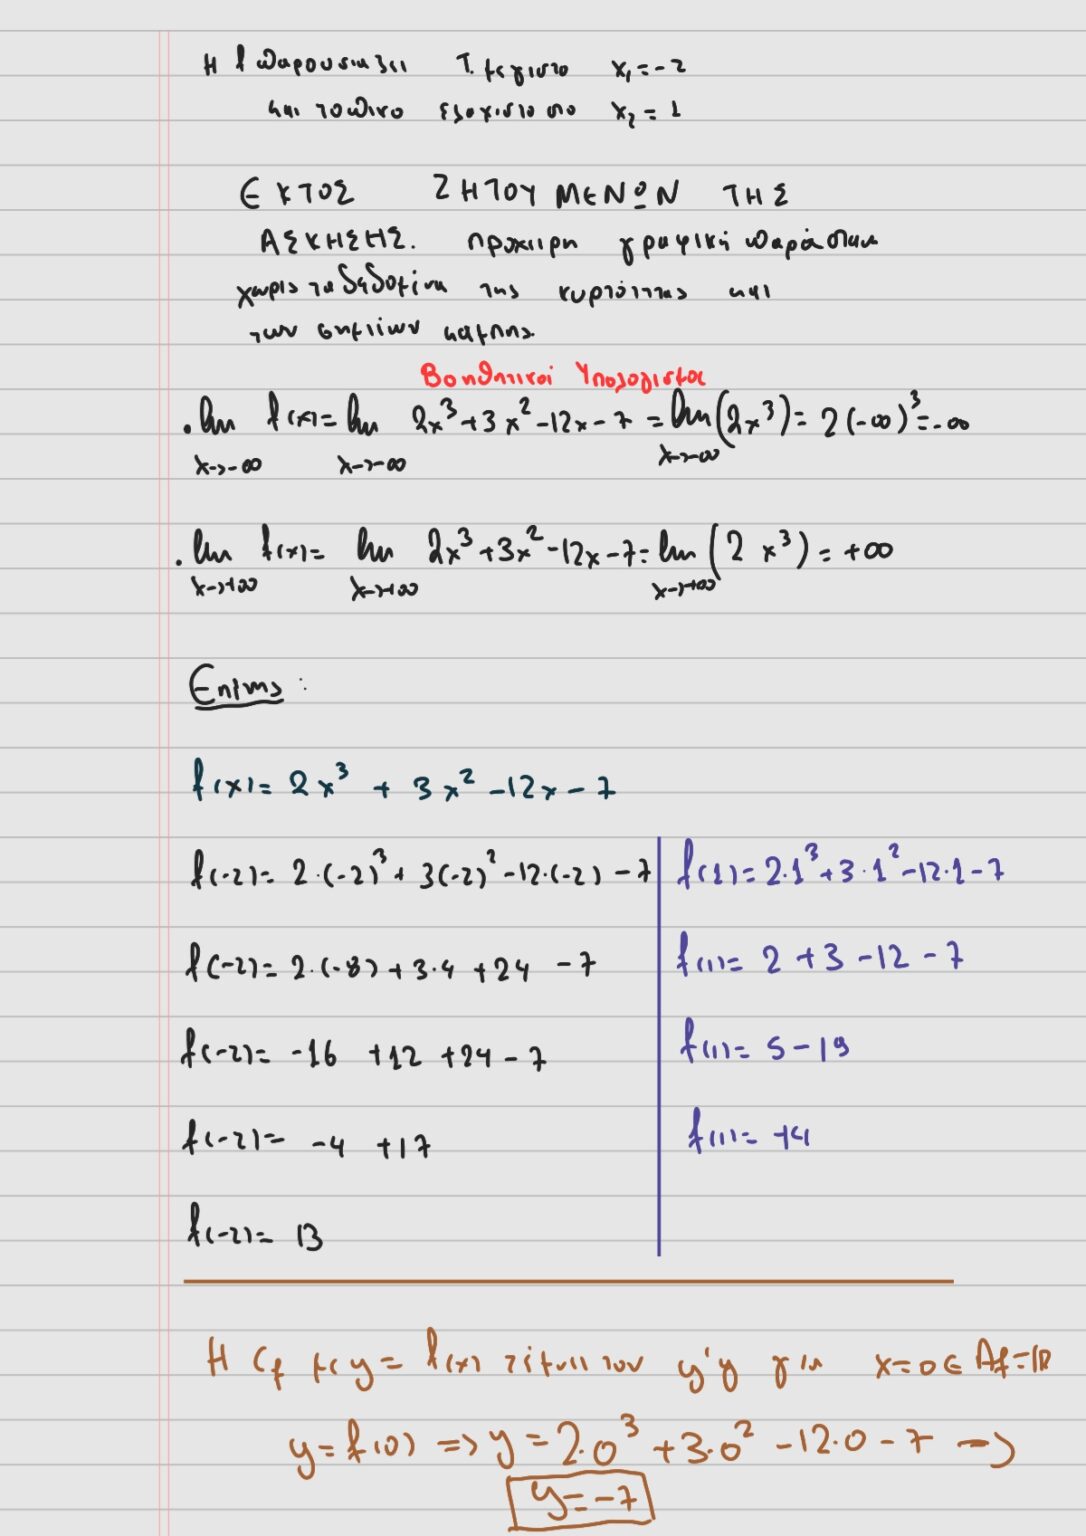 Η f παρουσιάζει Τ. μέγιστο x₁=-2
και τοπικο ελαχιστο στο x₂=1
ΕΚΤΟΣ ΖΗΤΟΥΜΕΝΩΝ ΤΗΣ
ΑΣΚΗΣΗΣ. πρόχειρη γραφική παράσταση
χωρις τα δεδομένα της κυρτότητας και
των σημείων καμπης.
Βοηθητικοί Υπολογισμοί
. lim f(x)= lim 2x³+3x²-12x-7 = lim (2x³)= 2(-∞)³=-∞
x→-∞ x→-∞ x→-∞
. lim f(x)= lim 2x³+3x²-12x-7= lim (2x³)= +∞
x→+∞ x→+∞ x→+∞
Επίσης :
f(x)= 2x³ + 3x² -12x - 7
f(-2)= 2·(-2)³+ 3(-2)²-12·(-2) -7 f(1)=2·1³+3·1²-12·1-7
f(-2)= 2·(-8)+3·4 +24 -7 f(1)= 2 +3 -12 -7
f(-2)= -16 +12 +24 -7 f(1)= 5-19
f(-2)= -4 +17 f(1)= -14
f(-2)= 13
Η Cf με y= f(x) τέμνει τον y'y για x=0 ∈ Af=ℝ
y=f(0) => y=2·0³+3·0²-12·0-7 =>
y=-7